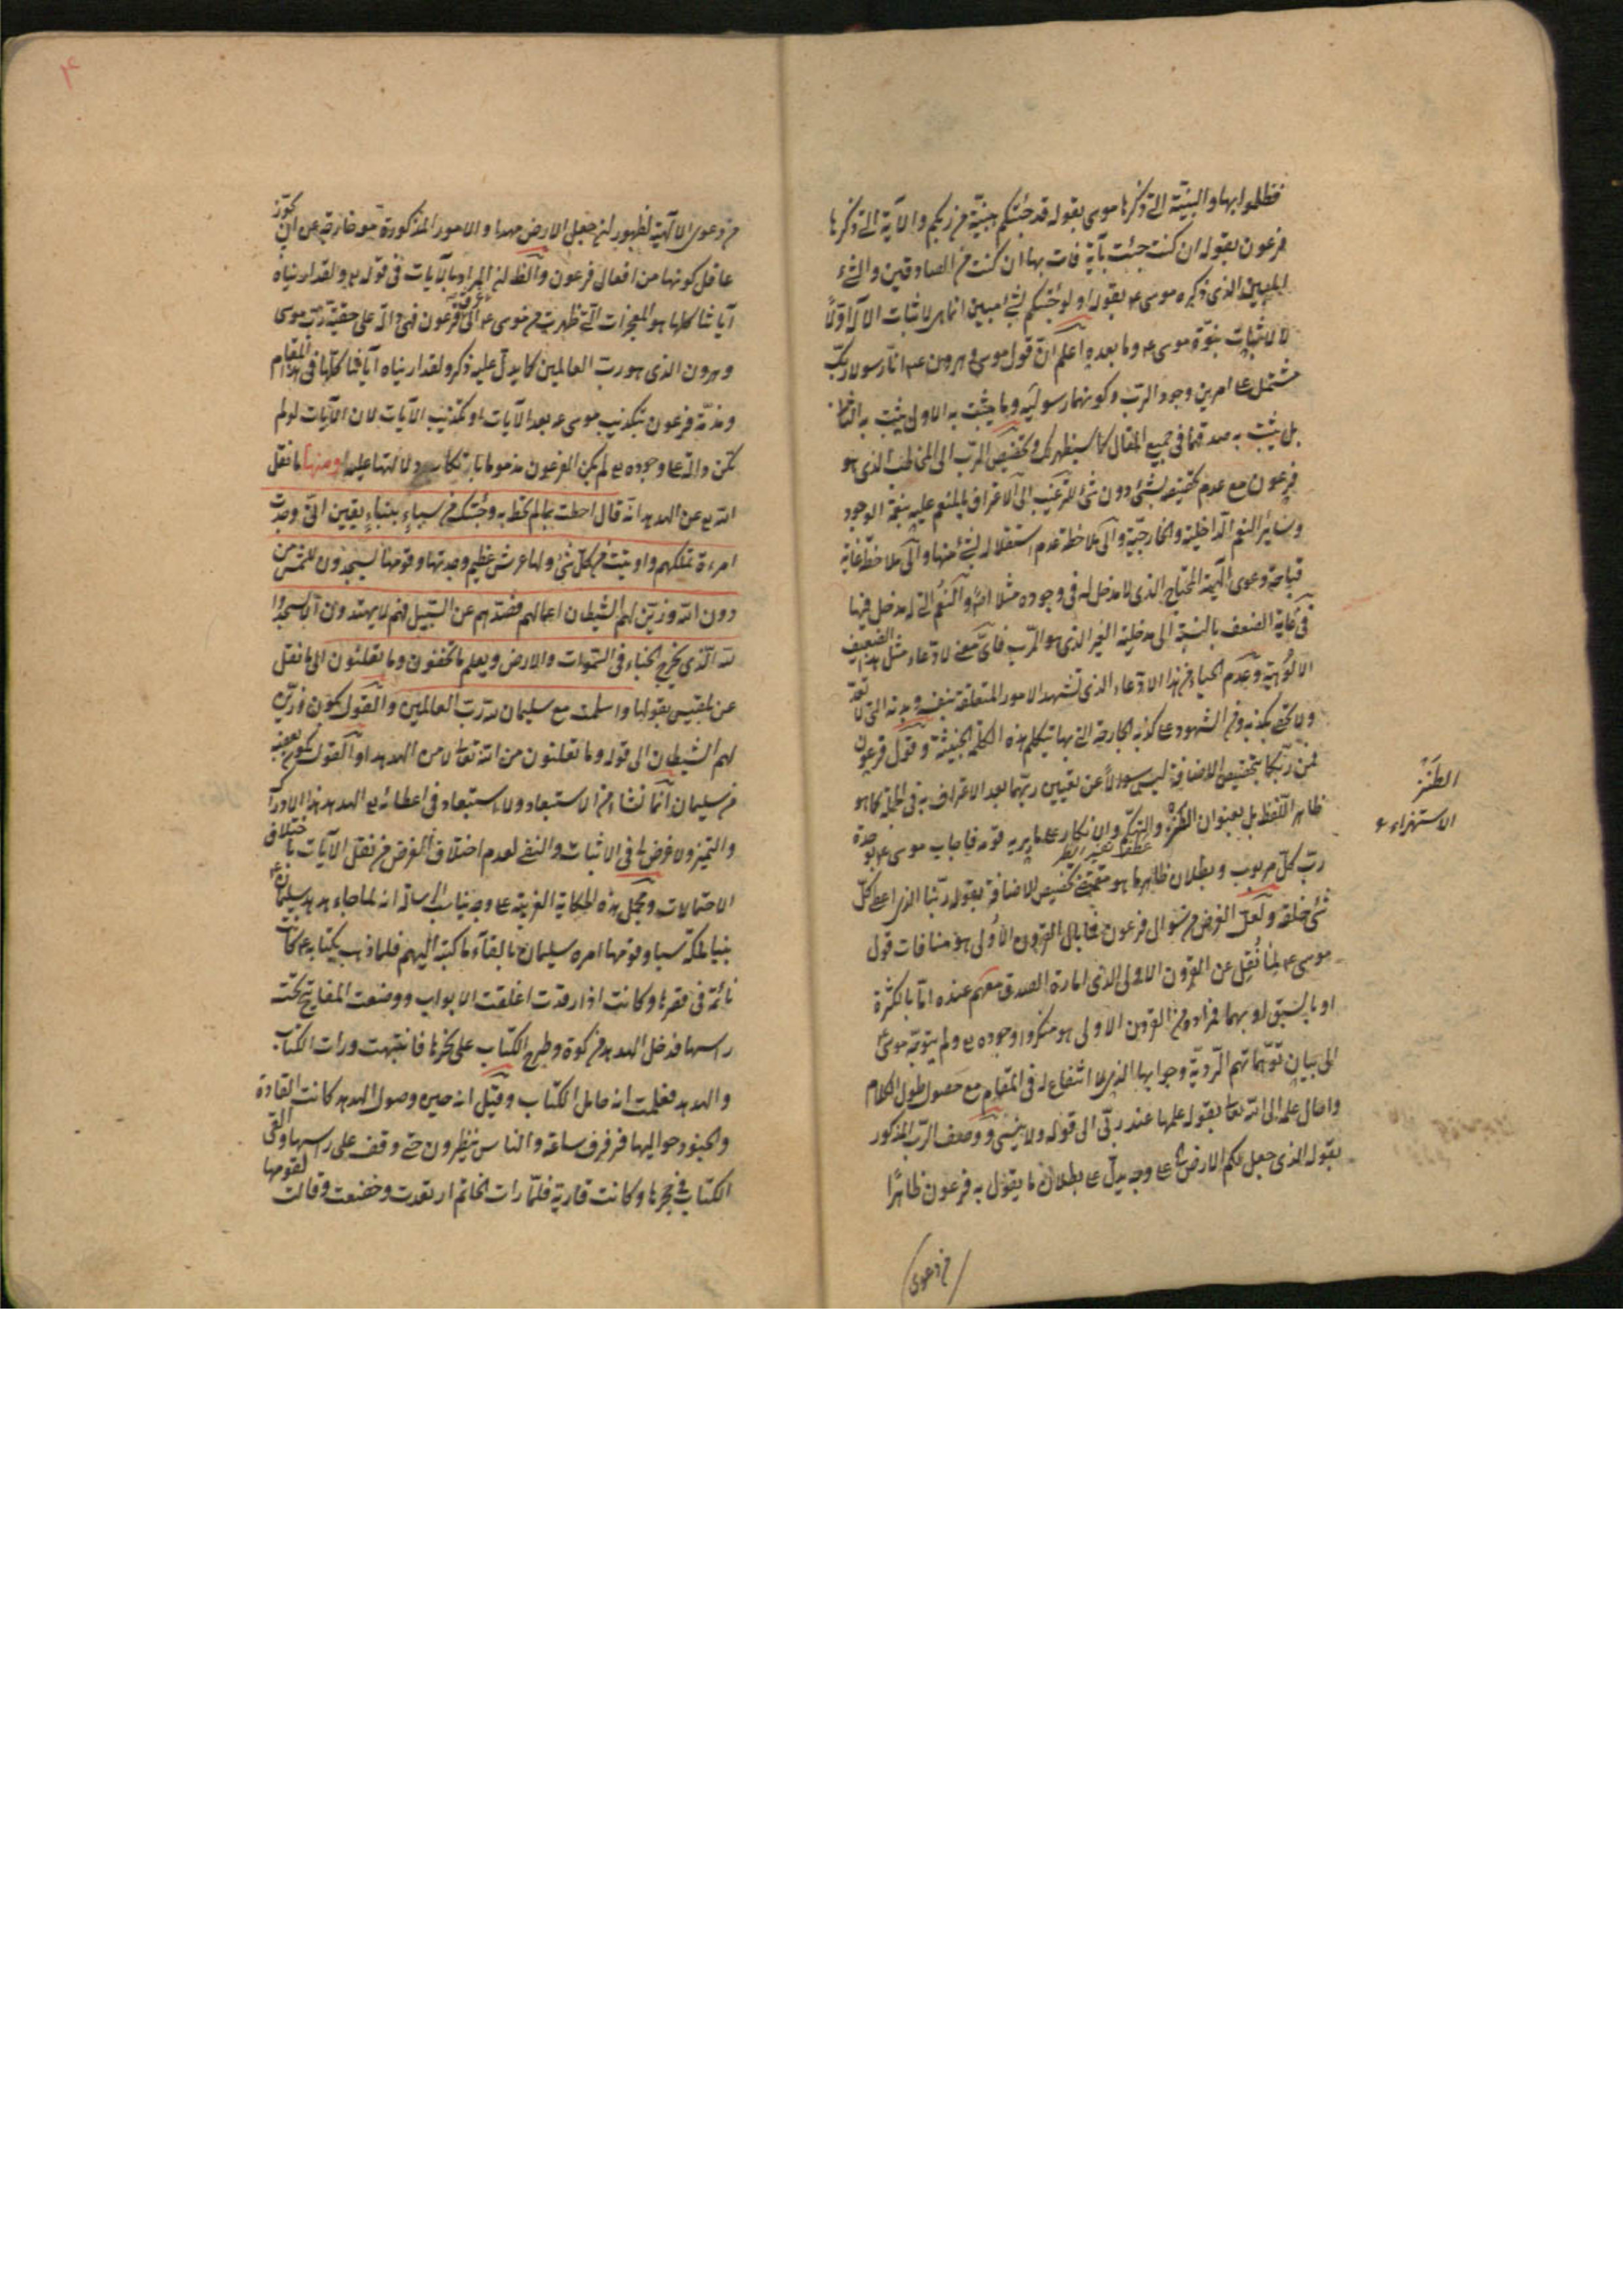 فظلموا بها والبينة التي ذكرها موسى بقوله قد جئتكم ببينة من ربكم والآية التي ذكرها
فرعون بقوله ان كنت جئت بآية فات بها ان كنت من الصادقين والشيء
المبين الذي ذكره موسى ع بقوله اولو جئتكم بشئ مبين انما هي لاثبات الاله اولا
لا لاثبات نبوة موسى ع وما بعده اعلم ان قول موسى وهرون ع انا رسولا ربك
مشتمل على امرين وجود الرب وكونهما رسوليه وما يثبت به الاولى يثبت به الثانى
بل يثبت به صدقهما في جميع المقال كما سيظهر لك وتخصيص الرب الى المخاطب الذي هو
فرعون مع عدم تخصيصه بشئ دون شئ للترغيب الى الاعتراف بالمنعم عليه بنعمة الوجود
وسائر النعم الداخلية والخارجية والى ملاحظة عدم استقلاله لشئ منها والى ملاحظة غاية
قباحة دعوى الهية المحتاج الذي لا مدخل له في وجوده مثلا اصلا والنعم التي له مدخل فيها
في غاية الضعف بالنسبة الى مدخلية الغير الذي هو الرب فاى معنى لادعاء مثل هذا الضعيف
الالوهية وعدم الحياء من هذا الادعاء الذي تشهد الامور المتعلقة بنفسه وبدنه التي لا تعد
ولا تحصى بكذبه ومن الشهود على كذبه الجارحة التي بها يتكلم هذه الكلمة الخبيثة وقول فرعون
فمن ربكما بتخصيص الاضافة ليس سوالا عن تعيين ربهما بعد الاعتراف به في الجملة كما هو
ظاهر اللفظ بل بعنوان الطنز والتهكم والانكار على ما يريد قومه فاجاب موسى ع بوحدة
عطف تفسير الطنز
رب كل مربوب وبطلان ظاهر ما هو مقتضى تخصيص الاضافة بقوله ربنا الذي اعطى كل
شئ خلقه ولعل الغرض من سوال فرعون فما بال القرون الاولى هو منافات قول
موسى ع لما نقل عن القرون الاولى الذي امارة الصدق معهم عنده اما بالكثرة
او بالسبق او بهما فمراده من القرون الاولى هو منكروا وجوده تع ولم يتوجه موسى
الى بيان توهماتهم الردية وجوابها الذي لا انتفاع له في المقام مع حصول طول الكلام
واحال علمه الى الله تعا بقوله علمها عند ربى الى قوله ولا ينسى ووصف الرب المذكور
بقوله الذي جعل لكم الارض على وجه يدل على بطلان ما يقول به فرعون ظاهرا
من دعوى
الطنز
الاستهزاء
٤
من دعوى الالهية لظهور ان جعل الارض مهدا والامور المذكورة خارجة عن ان يجوز
عاقل كونها من افعال فرعون والظ ان المراد بالآيات في قوله تع ولقد اريناه
آياتنا كلها هو المعجزات التي ظهرت من موسى ع الى فرعون فهى دالة على حقية رب موسى
وهرون الذي هو رب العالمين كما يدل عليه ذكر ولقد اريناه آياتنا كلها في هذا المقام
ومذمة فرعون بتكذيب موسى ع بعد الآيات او تكذيب الآيات لان الآيات لو لم
تكن دالة على وجوده تع لم يكن الفرعون مذموما بارتكاب لا دلالتها عليه ومنها ما نقل
الله تع عن الهدهد انه قال احطت بما لم تحط به وجئتك من سباء بنباء يقين انى وجدت
امرءة تملكهم واوتيت من كل شئ ولها عرش عظيم وجدتها وقومها يسجدون للشمس من
دون الله وزين لهم الشيطان اعمالهم فصدهم عن السبيل فهم لا يهتدون الا يسجدوا
لله الذي يخرج الخباء في السموات والارض ويعلم ما تخفون وما تعلنون الى ما نقل
عن بلقيس بقولها واسلمت مع سليمان لله رب العالمين والقول بكون وزين
لهم الشيطان الى قوله وما تعلنون من الله تعالى لا من الهدهد او القول بكون بعضه
من سليمان انما نشاء من الاستبعاد ولا استبعاد في اعطائه تع الهدهد هذا الادراك
والتميز ولا غرض لى في الاثبات والنفى لعدم اختلاف الغرض من نقل الآيات باختلاف
الاحتمالات ومجمل هذه الحكاية الغريبة على وجه يناسب الرسالة انه لما جاء هدهد سليمان ع
بنباء ملكة سبا وقومها امره سليمان بالقاء ما كتبه اليهم فلما ذهب بكتابه ع كانت
نائمة في قصرها وكانت اذا رقدت اغلقت الابواب ووضعت المفاتيح تحت
راسها فدخل الهدهد من كوة وطرح الكتاب على نحرها فانتبهت ورات الكتاب
والهدهد فعلمت انه حامل الكتاب وقيل انه حين وصول الهدهد كانت القادة
والجنود حواليها فرفرف ساعة والناس ينظرون حتى وقف على راسها والقى
الكتاب في حجرها وكانت قارية فلما رات الخاتم ارتعدت وخضعت وقالت لقومها